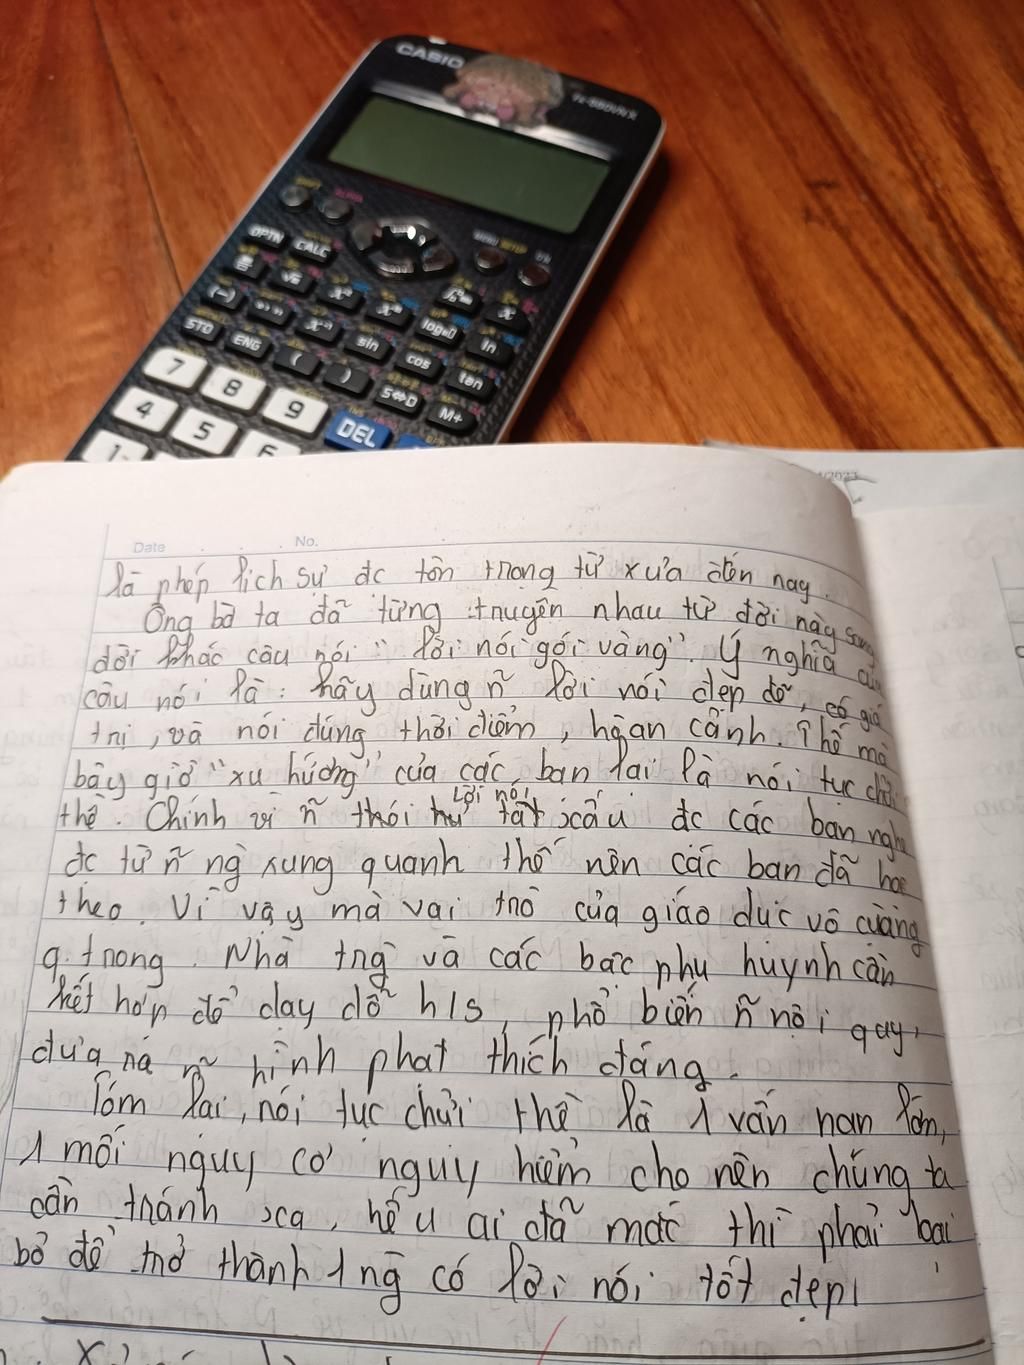 CASIO
fx-880VNX
SHIFT ALPHA
MENU SETUP
OPTN CALC
(-) x⁻¹ sin cos tan
log ln
STO ENG ( ) S⇔D M+
7 8 9 DEL
4 5 6
1
/2023
Date No.
là phép lịch sự đc tôn trọng từ xưa đến nay.
Ông bà ta đã từng truyền nhau từ đời này sang
đời khác câu nói "lời nói gói vàng". Ý nghĩa của
câu nói là: hãy dùng ñ lời nói đẹp đẽ, có giá
trị, và nói đúng thời điểm, hoàn cảnh. Thế mà
bây giờ "xu hướng" của các bạn lại là nói tục chửi
thề. Chính vì ñ thói hư lời nói tật xấu đc các bạn nghe
đc từ ñ ng xung quanh thế nên các bạn đã học
theo. Vì vậy mà vai trò của giáo dục vô cùng
q.trọng. Nhà trg và các bậc phụ huynh cần
kết hợp để dạy dỗ h/s, phổ biến ñ nội quy,
đưa ra ñ hình phạt thích đáng.
Tóm lại, nói tục chửi thề là 1 vấn nạn lớn,
1 mối nguy cơ nguy hiểm cho nên chúng ta
cần tránh xa, nếu ai đã mắc thì phải loại
bỏ để trở thành 1 ng có lời nói tốt đẹp!